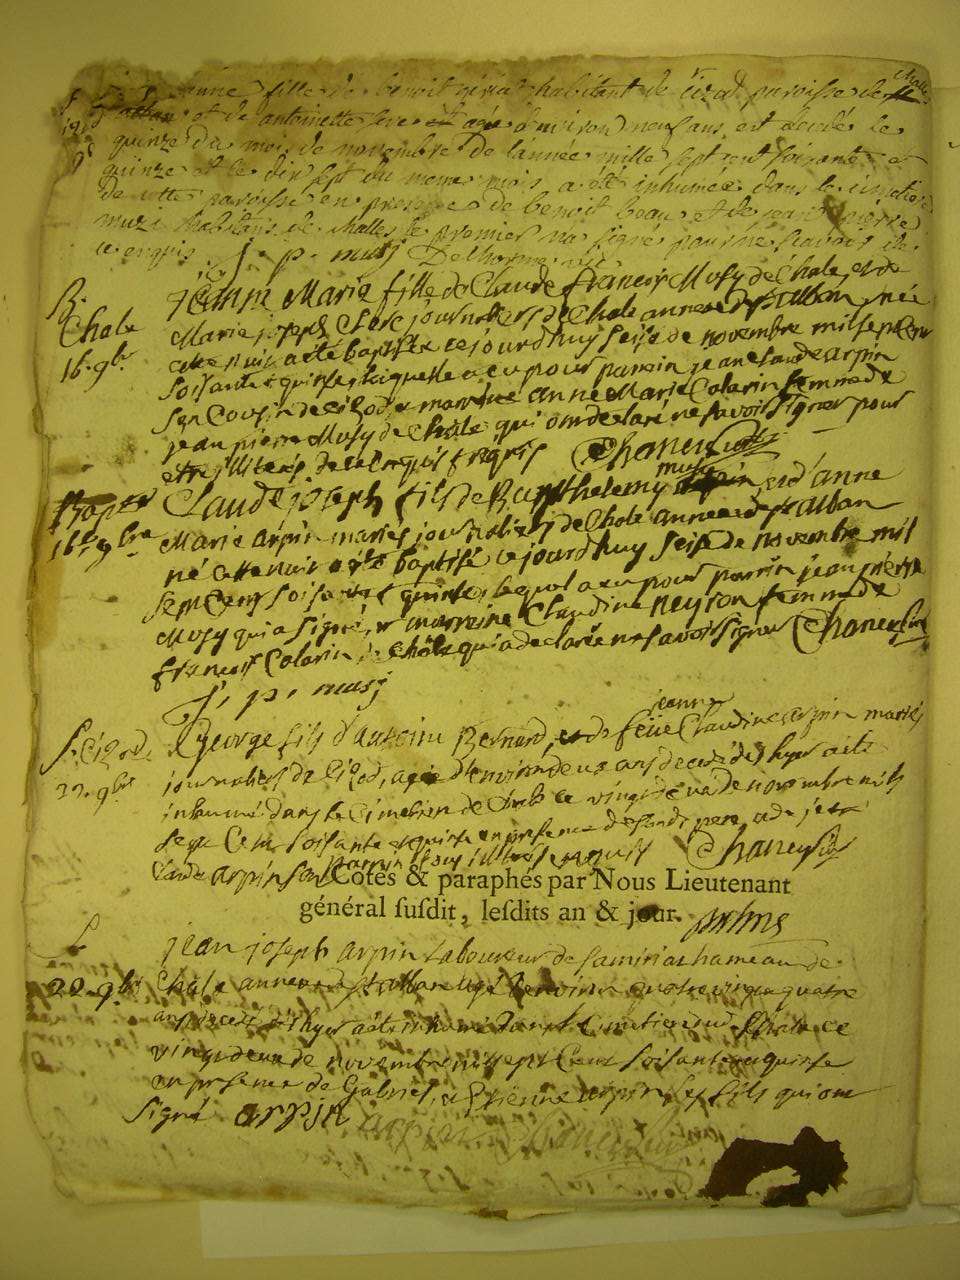 anne fille de benoit habitant de cizod paroisse de challe
et de antoinette sere d'environ neuf ans est decede le
quinze du mois de novembre de l'année mille sept cent soixante et
quinze et le dix sept du meme mois a été inhumée dans le cimetiere
de cette paroisse en presence de benoit beau et de jean pierre
muzi habitans de challes le premier na signé pour ne scavoir de
ce enquis j. p. musy Delhorme
B. Jeanne Marie fille de Claude françois Musy de Chale, et de
Chale Marie joseph Clere journaliers de Chale annexe de st alban, née
16. 9bre cette nuit a été baptisée ce jourd'huy seise de novembre mil sept Cent
soisante et quinse, laquelle a eu pour parrein jean Claude arpin
son Cousin de Cizod, et marreine anne Marie Colarin femme de
jean pierre Musy de Chale qui ont declaré ne savoir signer pour
etre illiterés de ce enquis et requis
Bapte Claude joseph fils de Barthelemy musy et d'anne
16. 9bre Marie arpin mariés journaliers de Chale annexe de st alban
né cette nuit a été baptisé ce jourd'huy seise de novembre mil
sept Cent soisante et quinse, lequel a eu pour parrein jean pierre
Musy qui a signé, et marreine Claudine neyron femme de
françois Colarin de Chale qui a declarée ne savoir signer
j. p. musy
S. Cizod. George fils d'antoine Bernard, et de feüe jeanne Claudine arpin mariés
22. 9bre journaliers de Cizod, agé d'environ deux ans decedé d'hyer a été
inhumé dans le Cimetiere de Chale ce vingt deux de novembre mil
sept Cent soisante et quinse en presence de son dt pere, et de jean
Claude arpin son parrin illiterés enquis
Cotés & paraphés par Nous Lieutenant
général susdit, lesdits an & jour.
S. jean joseph arpin Laboureur de hameau de
22. 9bre Chale annexe de st alban agé d'environ quatre vingt quatre
ans decedé d'hyer a été inhumé dans le Cimetiere dud. Chale ce
vingt deux de novembre mil sept Cent soisante et quinse
en presence de Gabriel, et Etienne arpin ses fils qui ont
signé arpin arpin